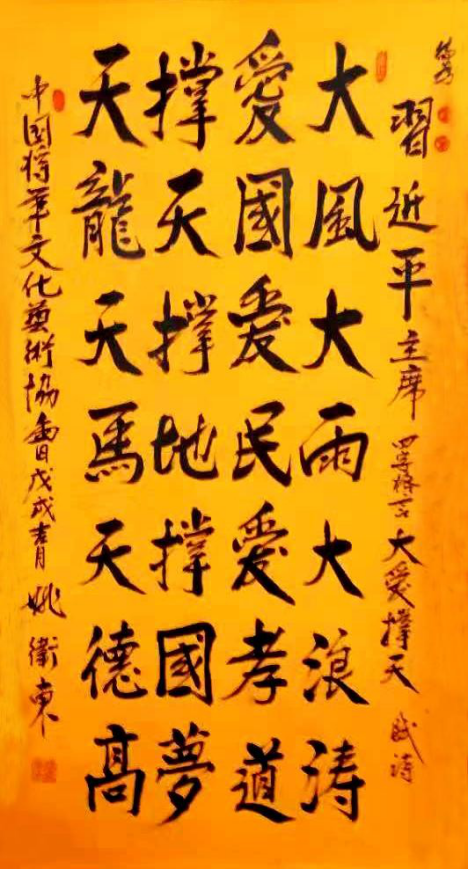 習近平主席 大愛撐天
大風大雨大浪涛
愛國愛民愛孝道
撐天撐地撐國夢
天龍天馬天德高
中国将军文化藝術協會戊戌青姚衛東